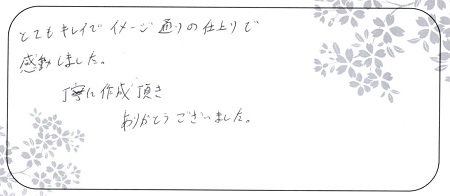 とてもキレイでイメージ通りの仕上りで
感動しました。
丁寧に作成頂き
ありがとうございました。